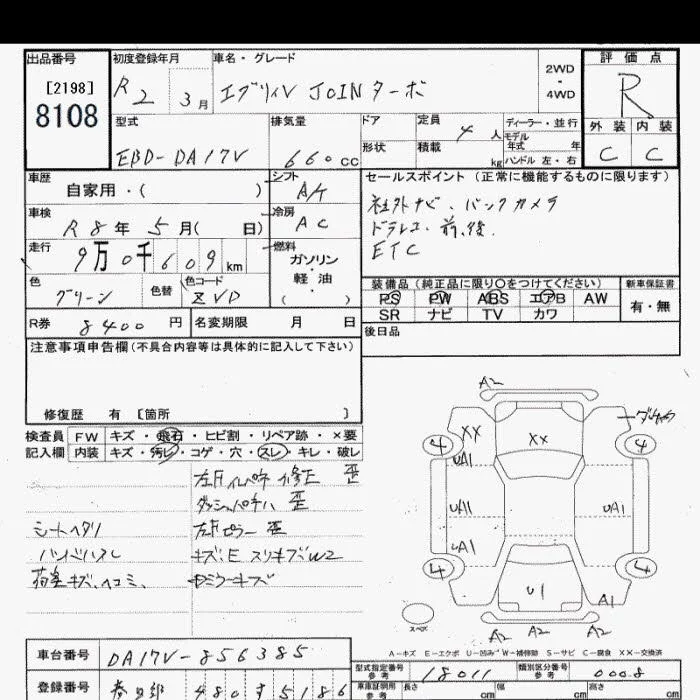 出品番号 初度登録年月 車名・グレード 評価点
[2198] R2 3月 エブリィV JOINターボ 2WD・4WD R
8108 型式 排気量 ドア 定員 4人 ディーラー・並行 外装 内装
モデル年式 年
形状 積載 kg ハンドル 左・右
EBD-DA17V 660cc C C
車歴 自家用・( ) シフト A/T セールスポイント (正常に機能するものに限ります)
車検 R8年5月( 日) 冷房 AC 社外ナビ、バックカメラ
ドラレコ 前,後.
走行 9万0千609km 燃料 ガソリン・軽油 ( ) ETC
色 グリーン 色替 色コード ZVD
装備品 (純正品に限り○をつけてください) 新車保証書
PS PW ABS エアB AW 有・無
SR ナビ TV カワ
R券 8400円 名変期限 月 日 後日品
注意事項申告欄(不具合内容等は具体的に記入して下さい)
修復歴 有 [箇所 ]
検査員記入欄 FW キズ・飛石・ヒビ割・リペア跡・×要
内装 キズ・汚レ・コゲ・穴・スレ・キレ・破レ
歪
歪
シートヘタリ 歪
キズ、E スリキズW2
荷室キズ、ヘコミ、
A2
ダッチャク
4 XX XX 4
UA1
UA1 UA1
UA1
4 U1 4
A1
スペア A2 A2 A2
A-キズ E-エクボ U-凹み W-補修跡 S-サビ C-腐食 XX-交換済
車台番号 DA17V-856385 型式指定番号 参考 18011 類別区分番号 参考 0008
登録番号 春日部 480 す 5186 車庫証明用 参考 長さ cm 幅 cm 高さ cm